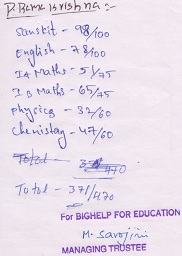 P. Rama Krishna :-
Sanskit - 98/100
English - 78/100
IA Maths - 51/75
IB Maths - 65/75
Physics - 32/60
Chemistry - 47/60
Total - 371/470
Total - 371/470
For BIGHELP FOR EDUCATION
M. Sarojini
MANAGING TRUSTEE